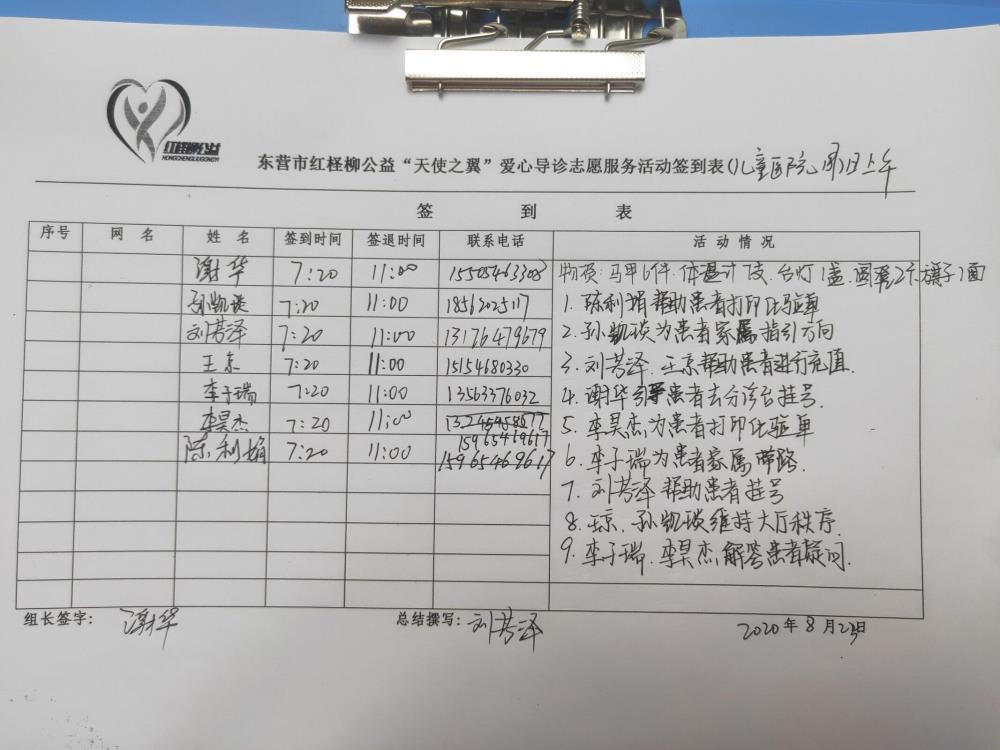 红柽柳公益
HONGCHENGLIUGONGYI
东营市红柽柳公益“天使之翼”爱心导诊志愿服务活动签到表(儿童医院 周日上午
签 到 表
序号 网 名 姓 名 签到时间 签退时间 联系电话 活 动 情 况
谢华 7:20 11:00 15505463308 物资:马甲6件.体温计1支.台灯1盏. 2个旗子1面
孙凯琰 7:20 11:00 18562025117 1. 陈利娟帮助患者打印化验单
刘芳泽 7:20 11:00 13176479679 2. 孙凯琰为患者家属指引方向
王京 7:20 11:00 15154680330 3. 刘芳泽.王京帮助患者进行充值.
李子瑞 7:20 11:00 13563376032 4. 谢华引导患者去分诊台挂号.
李昊杰 7:20 11:00 15965469617 5. 李昊杰为患者打印化验单
陈利娟 7:20 11:00 15965469617 6. 李子瑞为患者家属带路.
7. 刘芳泽帮助患者挂号
8. 王京.孙凯琰维持大厅秩序.
9. 李子瑞.李昊杰解答患者疑问.
组长签字: 谢华 总结撰写: 刘芳泽 2020年8月23日